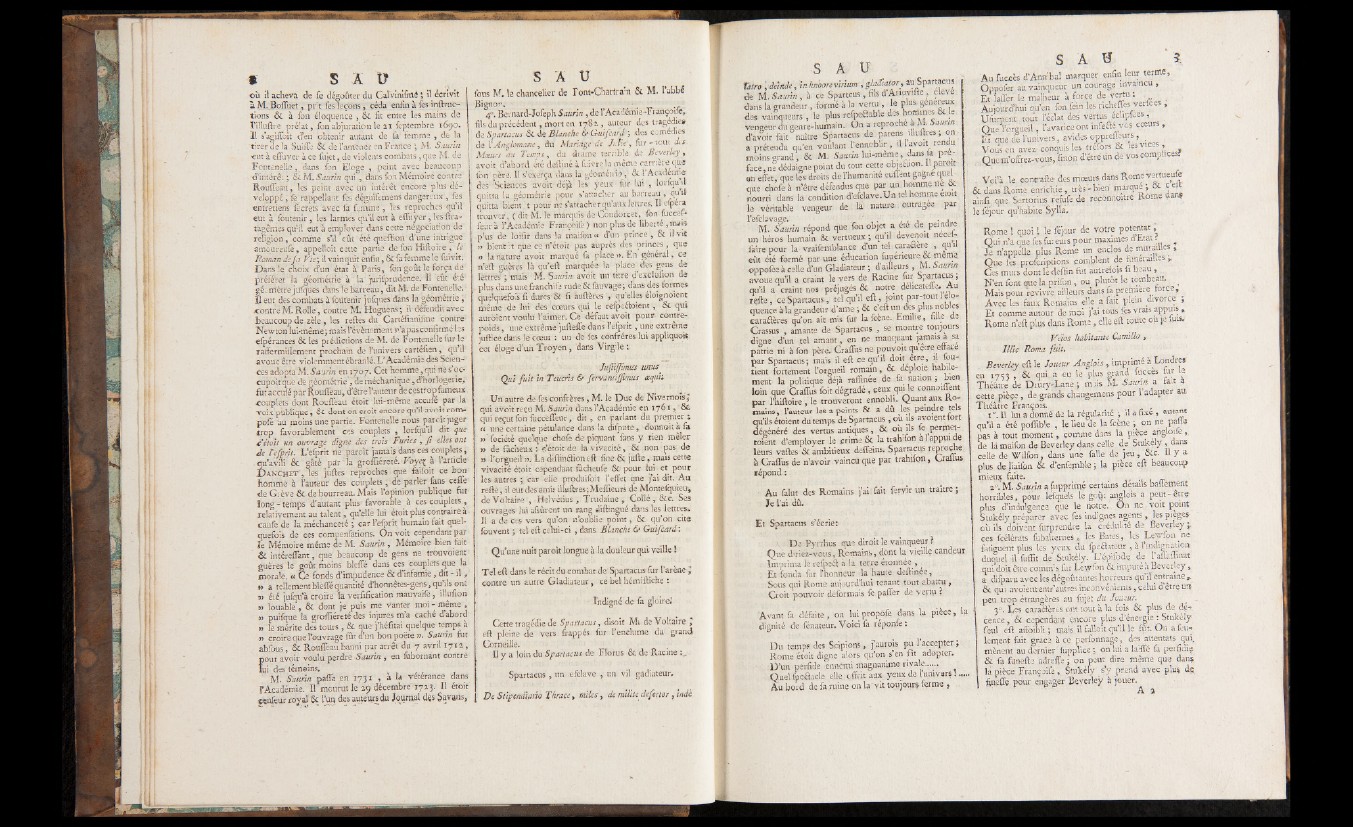 2 S A U
où il acheva de se dégoûter du Calvinisme ; il écrivit
à M. Bossuet, prit ses leçons, céda enfin à ses instruc-
tions & à son éloquence, & fit entre les mains de
l'illustre prélat, son abjuration le 21 septembre 1690.
Il s'agissoit d'en obtenir autant de sa femme, de la
tirer de la Suisse & de l'amener en France ; M. Saurin
eut à essuyer à ce sujet, de violents combats, que M. de
Fontenelle, dans son Eloge, peint avec beaucoup
d'intérêt ; & M. Saurin qui, dans son Mémoire contre
Rousseau, les peint avec un intérêt encore plus dé-
veloppé, se rappellant ses déguisemens dangereux, ses
entretiens secrets avec sa femme, les reproches qu'il
eut à soutenir, les larmes qu'il eut à essuyer, les stra-
tagêmes qu'il eut à employer dans cette négociation de
religion, comme s'il eût été question d'une intrigue
amoureuse, appelloit cette partie de son Histoire, le
Roman de sa Vie ; il vainquit enfin, & sa femme le suivit.
Dans le choix d'un état à Paris, son goût le força de
préférer la géométrie à la jurisprudence. Il eût été
géomètre jusques dans le barreau, dit M. de Fontenelle.
Il eut des combats à soutenir jusques dans la géométrie,
contre M. Rolle, contre M. Huguens ; il défendit avec
beaucoup de zèle, les restes du Cartésianisme contre
Newton lui-même ; mais l'événement n'a pas confirmé les
espérances & les prédictions de M. de Fontenelle sur le
raffermissement prochain de l'univers cartésien, qu'il
avoue être violemment ébranlé. L'Académie des Scien-
ces adopta M. Saurin en 1707. Cet homme, qui ne s'oc-
cupoit que de géométrie, de méchanique, d'horlogerie,
fut accusé par Rousseau, d'être l'auteur de ces trop fameux
couplets dont Rousseau étoit lui-même accusé par la
voix publique, & dont on croit encore qu'il avoit com-
posé au moins une partie. Fontenelle nous paroît juger
trop favorablement ces couplets, lorsqu'il dit que
c'étoit un ouvrage digne des trois Furies, si elles ont
de l'esprit. L'esprit ne paroît jamais dans ces couplets,
qu'avili & gâté par la grossièreté. Voyez à l'article
DANCHET, les justes reproches que faisoit ce bon
homme à l'auteur des couplets, de parler sans cesse
de Grève & de bourreau. Mais l'opinion publique fut
long-temps d'autant plus favorable à ces couplets,
relativement au talent, qu'elle lui étoit plus contraire à
cause de la méchanceté ; car l'esprit humain fait quel-
quefois de ces compensations. On voit cependant par
le Mémoire même de M. Saurin, Mémoire bien fait
& intéressant, que beaucoup de gens ne trouvoient
guères le goût moins blessé dans ces couplets que la
morale. « Ce fonds d'impudence & d'infamie, dit-il,
» a tellement blessé quantité d'honnêtes-gens, qu'ils ont
» été jusqu'à croire la versification mauvaise, illusion
» louable, & dont je puis me vanter moi-même,
» puisque la grossièreté des injures m'a caché d'abord
» le mérite des tours, & que j'hésitai quelque temps à
» croire que l'ouvrage fût d'un bon poëte ». Saurin fut
absous, & Rousseau banni par arrêt du 7 avril 1712,
pour avoir voulu perdre Saurin, en subornant contre
lui des témoins.
M. Saurin passa en 1731, à la vétérance dans
l'Académie. Il mourut le 29 décembre 1723. Il étoit
censeur royal & l'un des auteurs du Journal des Savans,
S A U
sous M. le chancelier de Pont-Chartrain & M. l'abbé
Bignon.
4°. Bernard-Joseph Saurin, de l'Académie-Françoise,
fils du précédent, mort en 1782, auteur des tragédies
de Spartacus & de Blanche & Guiscard ; des comédies
de l'Anglomane, du Mariage de Julie, sur-tout des
Mœurs du Temps, du drame terrible de Beverley,
avoit d'abord été destiné à suivre la même carrière que
son père. Il s'exerça dans la géométrie, & l'Académie
des Sciences avoit déjà les yeux sur lui, lorsqu'il
quitta la géométrie pour s'attacher au barreau, qu'il
quitta bientôt pour ne s'attacher qu'aux lettres. Il espéra
trouver, ( dit M. le marquis de Condorcet, son succes-
seur à l'Académie Françoise ) non plus de liberté, mais
plus de loisir dans la maison « d'un prince, & il vit
» bientôt que ce n'étoit pas auprès des princes, que
» la nature avoit marqué sa place ». En général, ce
n'est guères là qu'est marquée la place des gens de
lettres ; mais M. Saurin avoit un titre d'exclusion de
plus dans une franchise rude & sauvage ; dans des formes
quelquefois si dures & si austères, qu'elles éloignoient
même de lui des cœurs qui le respectoient, & qui
auroient voulu l'aimer. Ce défaut avoit pour contre-
poids, une extrême justesse dans l'esprit, une extrême
justice dans le cœur : un de ses confrères lui appliquoit
cet éloge d'un Troyen, dans Virgile :
Justissimus unus
Qui fuit in Teucris & servantissimus æqui.
Un autre de ses confrères, M. le Duc de Nivernois,
qui avoit reçu M. Saurin dans l'Académie en 1761, &
qui reçut son successeur, dit, en parlant du premier :
« une certaine pétulance dans la dispute, donnoit à sa
» société quelque chose de piquant sans y rien mêler
» de fâcheux : c'étoit de la vivacité, & non pas de
» l'orgueil ». La distinction est fine & juste, mais cette
vivacité étoit cependant fâcheuse & pour lui et pour
les autres ; car elle produisoit l'effet que j'ai dit. Au
reste, il eut des amis illustres ; Messieurs de Montesquieu,
de Voltaire, Helvétius, Trudaine, Collé, &c. Ses
ouvrages lui assurent un rang distingué dans les lettres.
Il a de ces vers qu'on n'oublie point, & qu'on cite
souvent ; tel est celui-ci, dans Blanche & Guiscard :
Qu'une nuit paroît longue à la douleur qui veille !
Tel est dans le récit du combat de Spartacus sur l'arène
contre un autre Gladiateur, ce bel hémistiche :
Indigné de sa gloire.
Cette tragédie de Spartacus, disoit M. de Voltaire,
est pleine de vers frappés sur l'enclume du grand
Corneille.
Il y a loin du Spartacus de Florus & de Racine :
Spartacus, un esclave, un vil gladiateur.
De Stipendiario Thrace, miles, de milite desertor, indè
S A U
latro, deinde, in honore virium, gladiator, au Spartacus
de M. Saurin, à ce Spartacus, fils d'Arioviste, élevé
dans la grandeur, formé à la vertu, le plus généreux
des vainqueurs, le plus respectable des hommes & le
vengeur du genre-humain. On a reproché à M. Saurin
d'avoir fait naître Spartacus de parens illustres ; on
a prétendu qu'en voulant l'ennoblir, il l'avoit rendu
moins grand, & M. Saurin lui-même, dans sa pré-
face, ne dédaigne point du tout cette objection. Il paroît
en effet, que les droits de l'humanité eussent gagné quel-
que chose à n'être défendus que par un homme né &
nourri dans la condition d'esclave. Un tel homme étoit
le véritable vengeur de la nature outragée par
l'esclavage.
M. Saurin répond que son objet a été de peindre
un héros humain & vertueux ; qu'il devenoit néces-
saire pour la vraisemblance d'un tel caractère, qu'il
eût été formé par une éducation supérieure & même
opposée à celle d'un Gladiateur ; d'ailleurs, M. Saurin
avoue qu'il a craint le vers de Racine sur Spartacus ;
qu'il a craint nos préjugés & notre délicatesse. Au
reste, ce Spartacus, tel qu'il est, joint par-tout l'élo-
quence à la grandeur d'ame ; & c'est un des plus nobles
caractères qu'on ait mis sur la scène. Emilie, fille de
Crassus, amante de Spartacus, se montre toujours
digne d'un tel amant, en ne manquant jamais à sa
patrie ni à son père. Crassus ne pouvoit qu'être effacé
par Spartacus ; mais il est ce qu'il doit être, il sou-
tient fortement l'orgueil romain, & déploie habile-
ment la politique déjà raffinée de sa nation ; bien
loin que Crassus soit dégradé, ceux qui le connoissent
par l'histoire, le trouveront ennobli. Quant aux Ro-
mains, l'auteur les a peints & a dû les peindre tels
qu'ils étoient du temps de Spartacus, où ils avoient fort
dégénéré des vertus antiques, & où ils se permet-
toient d'employer le crime & la trahison à l'appui de
leurs vastes & ambitieux desseins. Spartacus reproche
à Crassus de n'avoir vaincu que par trahison, Crassus
répond :
Au salut des Romains j'ai fait servir un traître ;
Je l'ai dû.
Et Spartacus s'écrie :
De Pyrrhus que diroit le vainqueur ?
Que diriez-vous, Romains, dont la vieille candeur
Imprima le respect à la terre étonnée,
Et fonda sur l'honneur la haute destinée,
Sous qui Rome aujourd'hui tenant tout abattu,
Croit pouvoir désormais se passer de vertu ?
Avant sa défaite, on lui propose dans la pièce, la
dignité de sénateur. Voici sa réponse :
Du temps des Scipions, j'aurois pu l'accepter ;
Rome étoit digne alors qu'on s'en fît adopter.
D'un perfide ennemi magnanime rivale.....
Quel spectacle elle offrit aux yeux de l'univers !.....
Au bord de sa ruine on la vit toujours ferme,
S A U 3
Au succès d'Annibal marquer enfin leur terme,
Opposer au vainqueur un courage invaincu,
Et lasser le malheur à force de vertu :
Aujourd'hui qu'en son sein les richesses versées,
Usurpent tout l'éclat des vertus éclipsées,
Que l'orgueil, l'avarice ont infesté vos cœurs,
Et que de l'univers, avides oppresseurs,
Vous en avez conquis les trésors & les vices,
Que m'offrez-vous, sinon d'être un de vos complices ?
Voilà le contraste des mœurs dans Rome vertueuse
& dans Rome enrichie, très-bien marqué ; & c'est
ainsi que Sertorius refuse de reconnoître Rome dans
le séjour qu'habite Sylla.
Rome ! quoi ! le séjour de votre potentat,
Qui n'a que ses fureurs pour maximes d'Etat ?
Je n'appelle plus Rome un enclos de murailles ;
Que les proscriptions comblent de funérailles ;
Ces murs dont le destin fut autrefois si beau,
N'en sont que la prison, ou plutôt le tombeau.
Mais pour revivre ailleurs dans sa première force,
Avec les faux Romains elle a fait plein divorce ;
Et comme autour de moi j'ai tous ses vrais appuis,
Rome n'est plus dans Rome, elle est toute où je suis.
Veios habitante Camillo,
Illic Roma fuit.
Beverley est le Joueur Anglois, imprimé à Londres
en 1753, & qui a eu le plus grand succès sur le
Théâtre de Drury-Lane ; mais M. Saurin a fait à
cette pièce, de grands changemens pour l'adapter au
Théâtre François.
1°. Il lui a donné de la régularité, il a fixé, autant
qu'il a été possible, le lieu de la scène, on ne passa
pas à tout moment, comme dans la pièce angloise,
de la maison de Beverley dans celle de Stukély, dans
celle de Wilson, dans une salle de jeu, &c. Il y a
plus de liaison & d'ensemble ; la pièce est beaucoup
mieux faite.
2°. M. Saurin a supprimé certains détails bassement
horribles, pour lesquels le goût anglois a peut-être
plus d'indulgence que le notre. On ne voit point
Stukély préparer avec ses indignes agents, les pièges
où ils doivent surprendre la crédulité de Beverley ;
ces scélérats subalternes, les Bates, les Lewson ne
fatiguent plus les yeux du spectateur, à l'indignation
duquel il suffit de Stukély. L'épisode de l'assassinat
qui doit être commis sur Lewson & imputé à Beverley,
a disparu avec les dégoûtantes horreurs qu'il entraîne,
& qui avoient entr'autres inconvéniens, celui d'être un
peu trop étrangères au sujet du Joueur.
3°. Les caractères ont tout à la fois & plus de dé-
cence, & cependant encore plus d'énergie : Stukély
seul est affoibli ; mais il falloit qu'il le fût. On a seu-
lement fait grace à ce personnage, des attentats qui
mènent au dernier supplice ; on lui a laissé sa perfidie
& sa funeste adresse ; on pour dire même que dans
la pièce Françoise, Stukély s'y prend avec plus de
finesse pour engager Beverley à jouer.
A 2